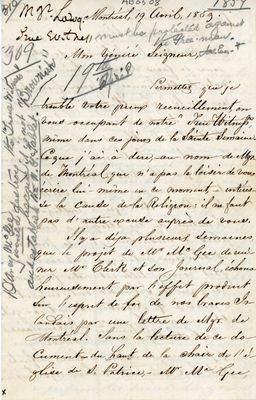 1859
309
Montréal, 19 Avril, 1859
True Witness
Mon Vénéré Seigneur,
19 Avril
Permettez que je
trouble votre pieux recueillement en
vous occupant de notre "True Witness"
même dans ces jours de la Semaine Sainte
que j'ai à dire, au nom de Mgr
de Montréal, que n'a pas le loisir de vous
écrire lui-même en ce moment, intéresse
la cause de la Religion: il ne faut
pas d'autre excuse auprès de vous.
Il y a déjà plusieurs semaines
que le projet de Mr McGee de ruiner
Mr Clerk et son Journal, échoua
heureusement par l'effet produit
sur l'esprit de foi de nos braves Irlandais
par une lettre de Mgr de
Montréal. Sans la lecture de ce document
du haut de la chaire de l'église
de St Patrice, Mr McGee